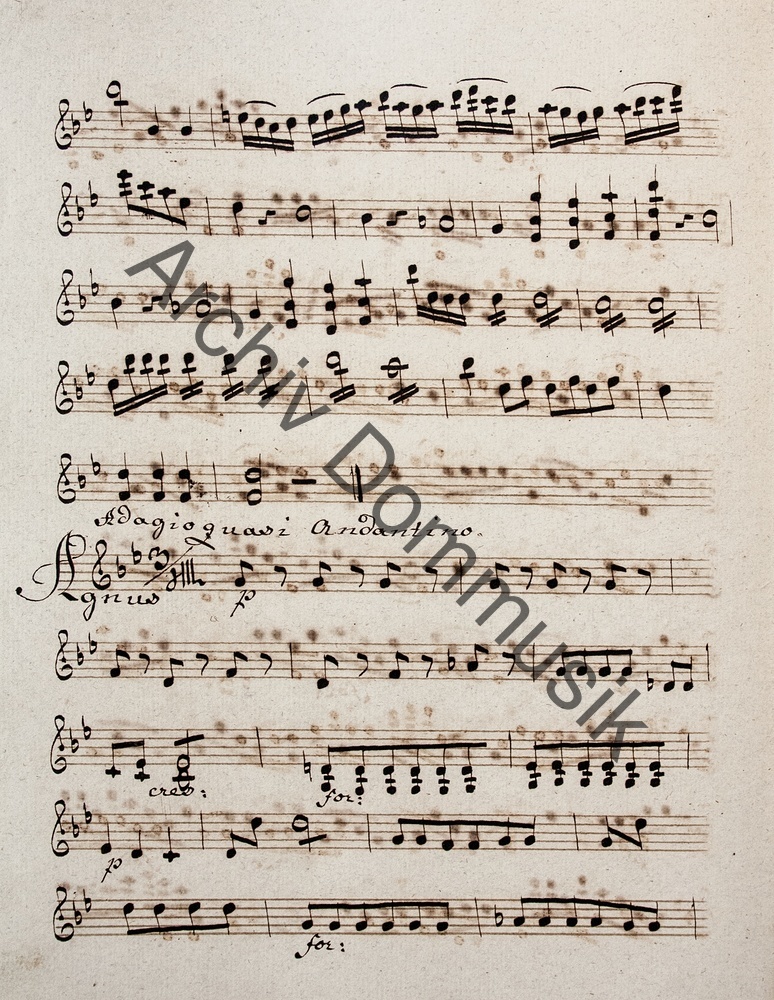 Adagio quasi Andantino.
Agnus
3/4
p
cres:
for:
p
for:
Archiv Dommusik